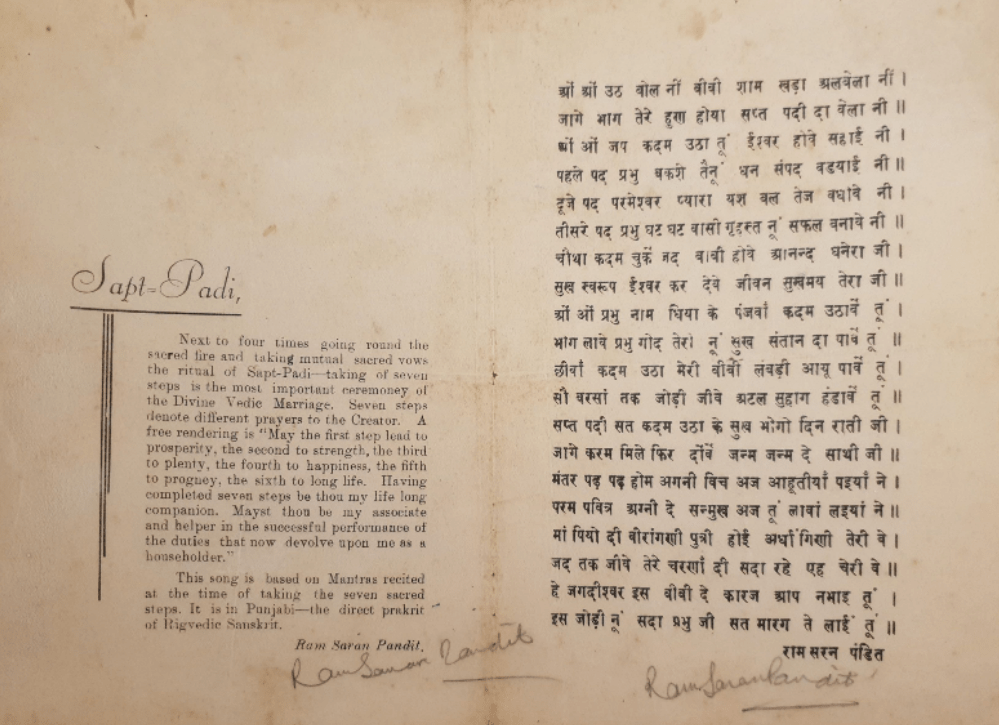 Sapt-Padi,
Next to four times going round the
sacred fire and taking mutual sacred vows
the ritual of Sapt-Padi—taking of seven
steps is the most important ceremoney of
the Divine Vedic Marriage. Seven steps
denote different prayers to the Creator. A
free rendering is "May the first step lead to
prosperity, the second to strength, the third
to plenty, the fourth to happiness, the fifth
to progney, the sixth to long life. Having
completed seven steps be thou my life long
companion. Mayst thou be my associate
and helper in the successful performance of
the duties that now devolve upon me as a
householder."
This song is based on Mantras recited
at the time of taking the seven sacred
steps. It is in Punjabi—the direct prakrit
of Rigvedic Sanskrit.
Ram Saran Pandit.
Ram Saran Pandit
ओं ओं उठ बोल नीं बीबी शाम खड़ा अलबेला नीं ।
जागे भाग तेरे हुण होया सप्त पदी दा वेला नी ॥
ओं ओं जप कदम उठा तूं ईश्वर होवे सहाई नी ।
पहले पद प्रभु बकशे तैनूं धन संपद वडयाई नी ॥
दूजे पद परमेश्वर प्यारा यश बल तेज वधावे नी ।
तीसरे पद प्रभु घट घट वासी गृहस्त नूं सफल बनावे नी ॥
चौथा कदम चुकें जद बीबी होवे आनन्द घनेरा जी ।
सुख स्वरूप ईश्वर कर देवे जीवन सुखमय तेरा जी ॥
ओं ओं प्रभु नाम धिया के पंजवां कदम उठावें तूं ।
भाग लावे प्रभु गोद तेरी नूं सुख संतान दा पावें तूं ॥
छीवां कदम उठा मेरी बीबी लंबड़ी आयू पावें तूं ।
सौ बरसां तक जोड़ी जीवे अटल सुहाग हंडावें तूं ॥
सप्त पदी सत कदम उठा के सुख भोगो दिन राती जी ।
जागे करम मिले फिर दोंवें जन्म जन्म दे साथी जी ॥
मंतर पढ़ पढ़ होम अगनी विच अज आहूतीयाँ पइयाँ ने ।
परम पवित्र अग्नी दे सन्मुख अज तूं लावां लइयां ने ॥
मां पियो दी वीरांगणी पुत्री होई अर्धांगिणी तेरी वे ।
जद तक जीवे तेरे चरणाँ दी सदा रहे एह चेरी वे ॥
हे जगदीश्वर इस बीबी दे कारज आप नभाइ तूं ।
इस जोड़ी नूं सदा प्रभु जी सत मारग ते लाईं तूं ॥
राम सरन पंडित
Ram Saran Pandit